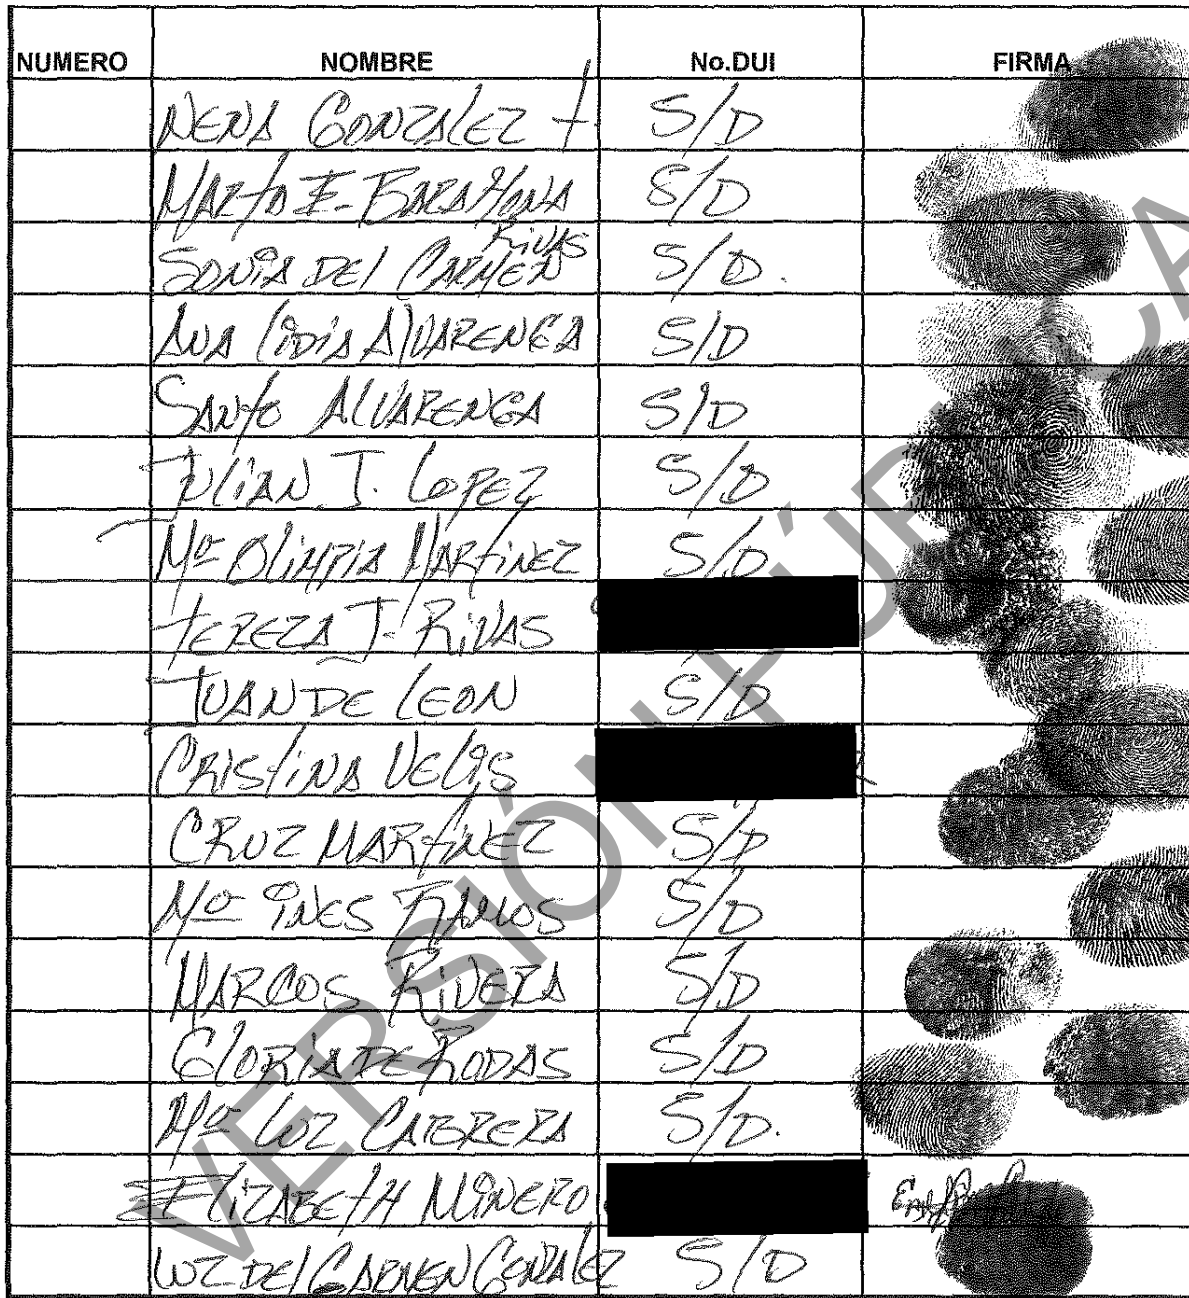 NUMERO NOMBRE No.DUI FIRMA
NENA GONZALEZ S/D
MARTA E. BARAHONA S/D
RIVAS
SONIA DEL CARMEN S/D.
ANA LIDIA ALVARENGA S/D
SANTO ALVARENGA S/D
JULIAN J. LOPEZ S/D
Mª OLIMPIA MARTINEZ S/D
TEREZA J. RIVAS
JUAN DE LEON S/D
CRISTINA VELIS
CRUZ MARTINEZ S/D
Mª INES RAMOS S/D
MARCOS RIVERA S/D
GLORIA DE RODAS S/D
Mª LUZ CABRERA S/D.
ELIZABETH MINERO
LUZ DEL CARMEN GONZALEZ S/D
VERSIÓN PÚBLICA